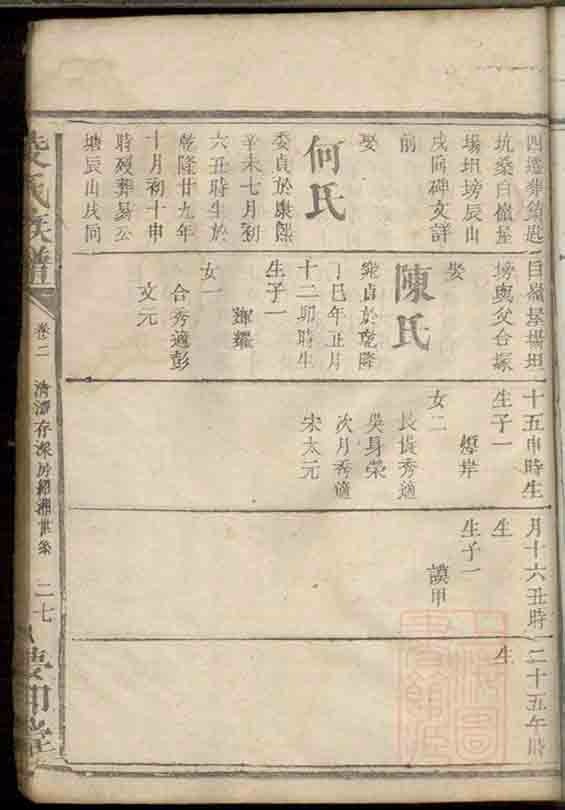 四遷葬鎖匙
坑桑白嶺屋
場坦塝辰山
戌向碑文詳
前
娶
何氏
委貞於康熙
辛未七月初
六丑時生於
乾隆廿九年
十月初十申
時歿葬易公
塘辰山戌向
白嶺屋場坦
塝與父合塚
娶
陳氏
貞於乾隆
丁巳年正月
十二卯時生
生子一
輝耀
女一
合秀適彭
文元
十五申時生
生子一
岸
女二
長秀適
吳身榮
次月秀適
宋太元
月十六丑時
生
生子一
謨甲
二十五午時
生
氏族譜
卷二
清潭存深房紹湘世系
二七
上海圖
書館藏